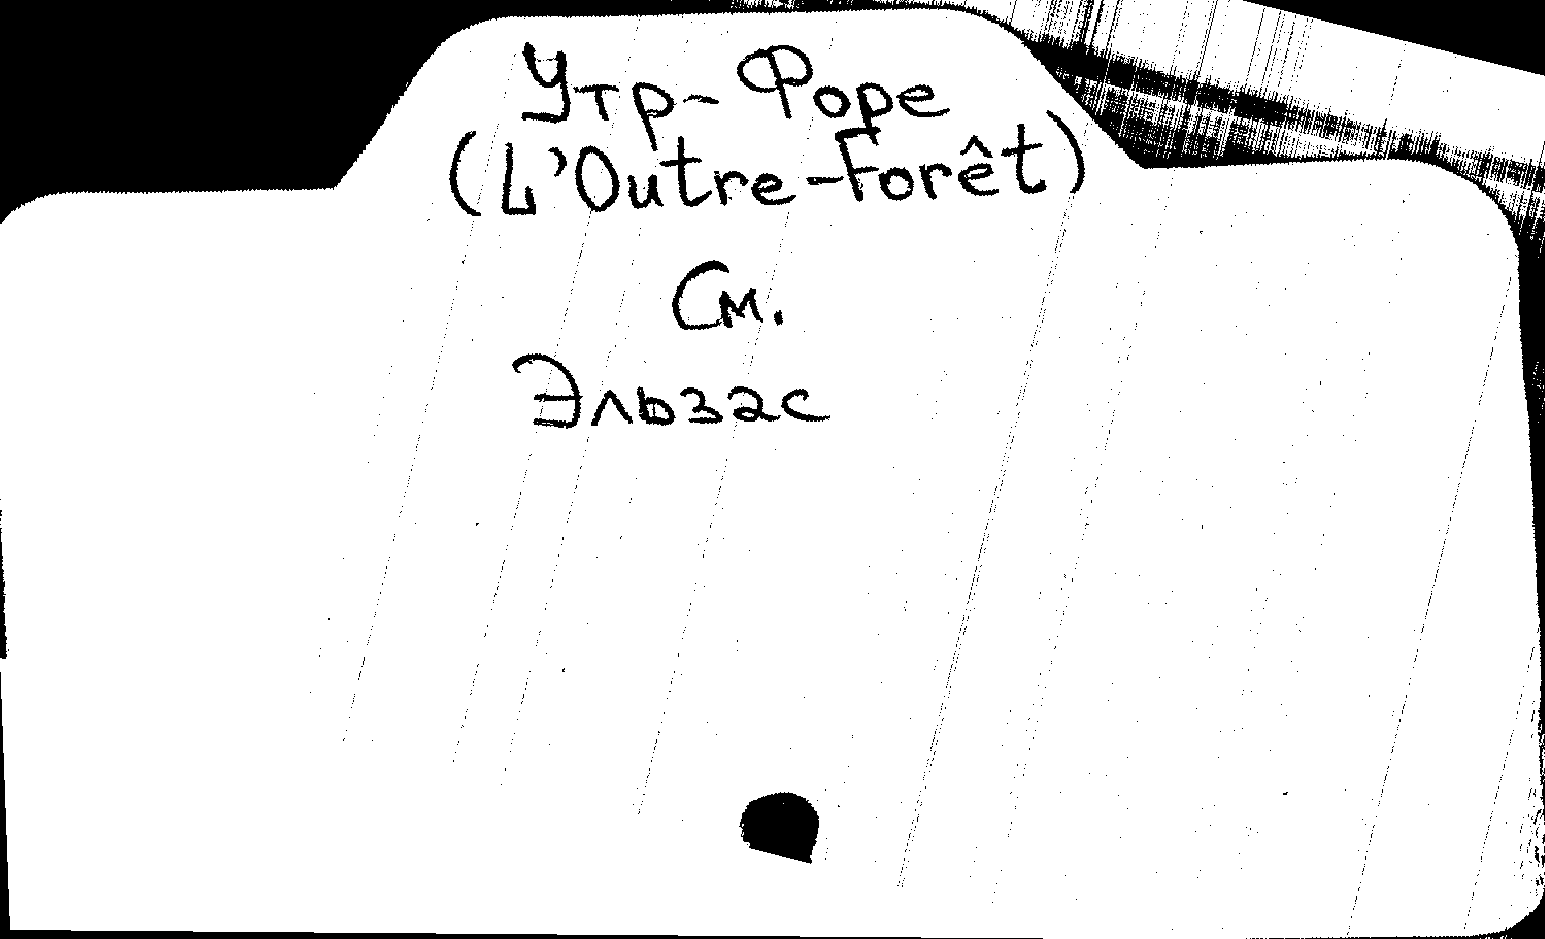 Утр-Форе
(L'Outre-Forêt)
См.
Эльзас